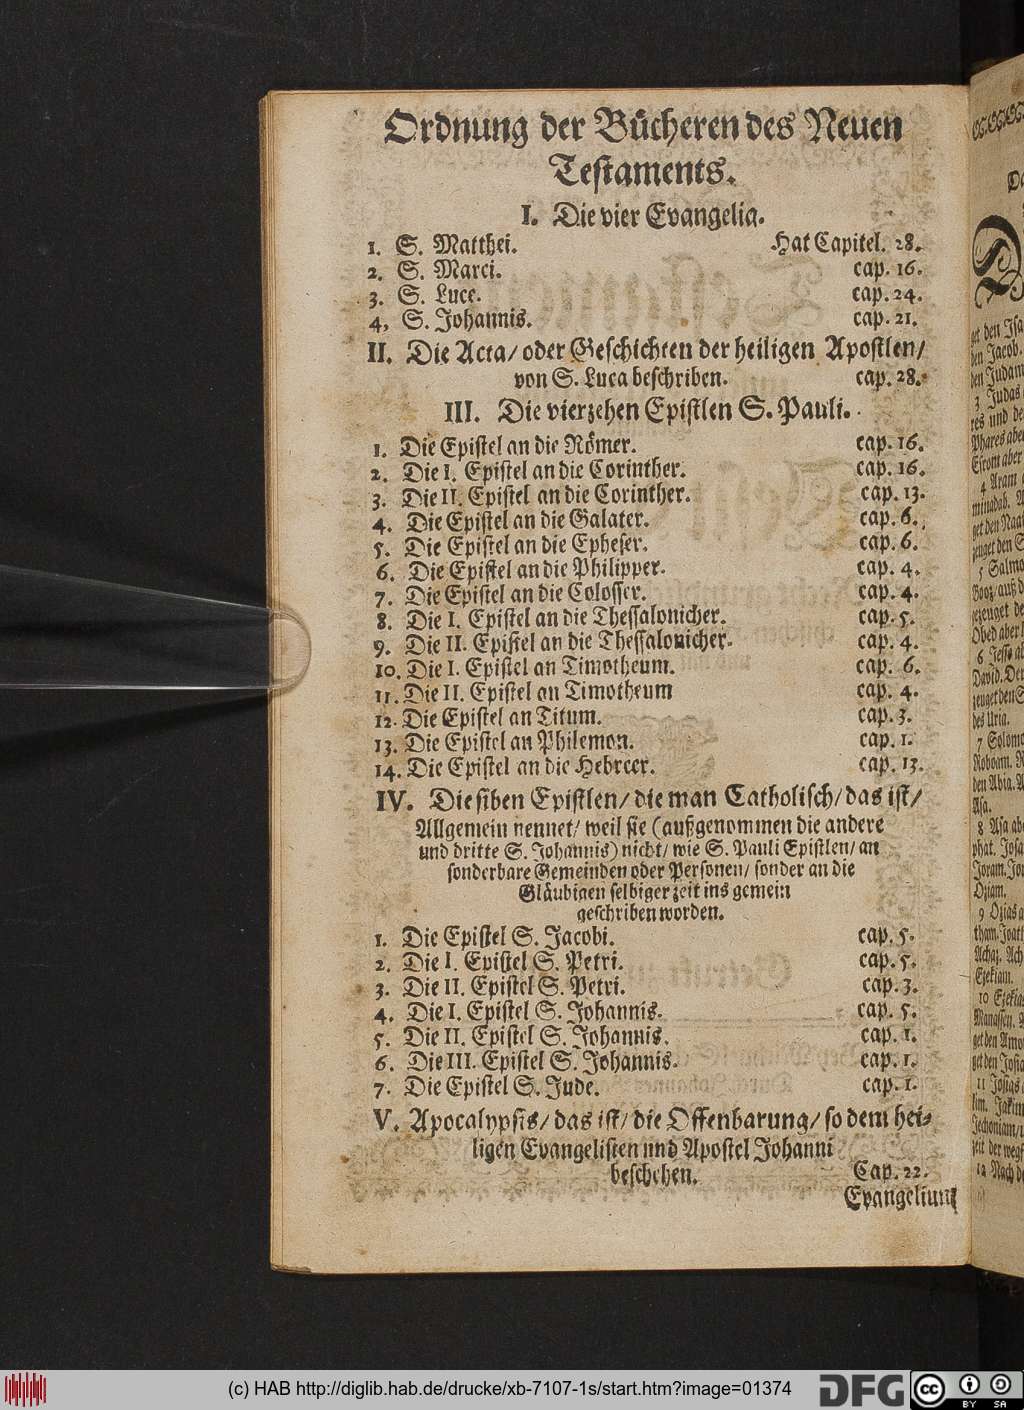 Ordnung der Bücheren des Neuen
Testaments.
I. Die vier Evangelia.
1. S. Matthei. Hat Capitel. 28.
2. S. Marci. cap. 16.
3. S. Luce. cap. 24.
4, S. Johannis. cap. 21.
II. Die Acta/ oder Geschichten der heiligen Apostlen/
von S. Luca beschriben. cap. 28.
III. Die vierzehen Epistlen S. Pauli.
1. Die Epistel an die Römer. cap. 16.
2. Die I. Epistel an die Corinther. cap. 16.
3. Die II. Epistel an die Corinther. cap. 13.
4. Die Epistel an die Galater. cap. 6.
5. Die Epistel an die Epheser. cap. 6.
6. Die Epistel an die Philipper. cap. 4.
7. Die Epistel an die Colosser. cap. 4.
8. Die I. Epistel an die Thessalonicher. cap. 5.
9. Die II. Epistel an die Thessalonicher. cap. 4.
10. Die I. Epistel an Timotheum. cap. 6.
11. Die II. Epistel an Timotheum cap. 4.
12. Die Epistel an Titum. cap. 3.
13. Die Epistel an Philemon. cap. 1.
14. Die Epistel an die Hebreer. cap. 13.
IV. Die siben Epistlen/ die man Catholisch/ das ist/
Allgemein nennet/ weil sie (außgenommen die andere
und dritte S. Johannis) nicht/ wie S. Pauli Epistlen/ an
sonderbare Gemeinden oder Personen/ sonder an die
Gläubigen selbiger zeit ins gemein
geschriben worden.
1. Die Epistel S. Jacobi. cap. 5.
2. Die I. Epistel S. Petri. cap. 5.
3. Die II. Epistel S. Petri. cap. 3.
4. Die I. Epistel S. Johannis. cap. 5.
5. Die II. Epistel S. Johannis. cap. 1.
6. Die III. Epistel S. Johannis. cap. 1.
7. Die Epistel S. Jude. cap. 1.
V. Apocalypsis/ das ist/ die Offenbarung/ so dem hei-
ligen Evangelisten und Apostel Johanni
beschehen. Cap. 22.
Evangelium
(c) HAB http://diglib.hab.de/drucke/xb-7107-1s/start.htm?image=01374
DFG
cc BY SA